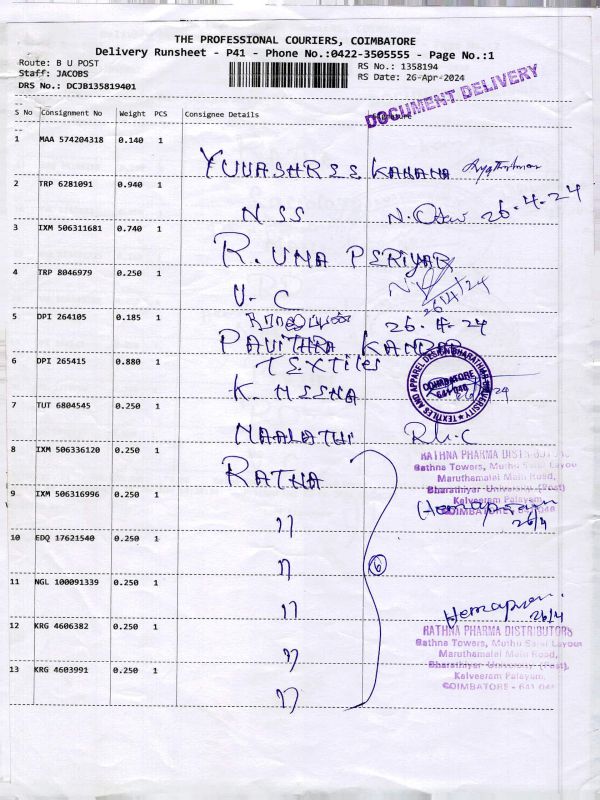 THE PROFESSIONAL COURIERS, COIMBATORE
Delivery Runsheet - P41 - Phone No.:0422-3505555 - Page No.:1
Route: B U POST
Staff: JACOBS
DRS No.: DCJB135819401
RS No.: 1358194
RS Date: 26-Apr-2024
DOCUMENT DELIVERY
S No Consignment No Weight PCS Consignee Details
1 MAA 574204318 0.140 1
YUVASHREE KANANA
2 TRP 6281091 0.940 1
NSS 26-4-24
3 IXM 506311681 0.740 1
R. UMA PERIYAR
4 TRP 8046979 0.250 1
U-C 26/4/24
5 DPI 264105 0.185 1
26-4-24
PAVITHRA
6 DPI 265415 0.880 1
TEXTILES
K. MEENA
TEXTILES AND APPAREL DESIGN BHARATHIAR UNIVERSITY
COIMBATORE
641 046
7 TUT 6804545 0.250 1
MAALATHI
8 IXM 506336120 0.250 1
RATNA
RATHNA PHARMA DISTRIBUTORS
Rathna Towers, Muthu Salai Layou
Maruthamalai Main Road,
Bharathiyar University (Post)
Kalveeram Palayam
COIMBATORE - 641 046
9 IXM 506316996 0.250 1
"
26/4
10 EDQ 17621540 0.250 1
"
6
11 NGL 100091339 0.250 1
"
26/4
12 KRG 4606382 0.250 1
"
RATHNA PHARMA DISTRIBUTORS
Rathna Towers, Muthu Salai Layou
Maruthamalai Main Road,
Bharathiyar University (Post),
Kalveeram Palayam,
COIMBATORE - 641 046
13 KRG 4603991 0.250 1
"